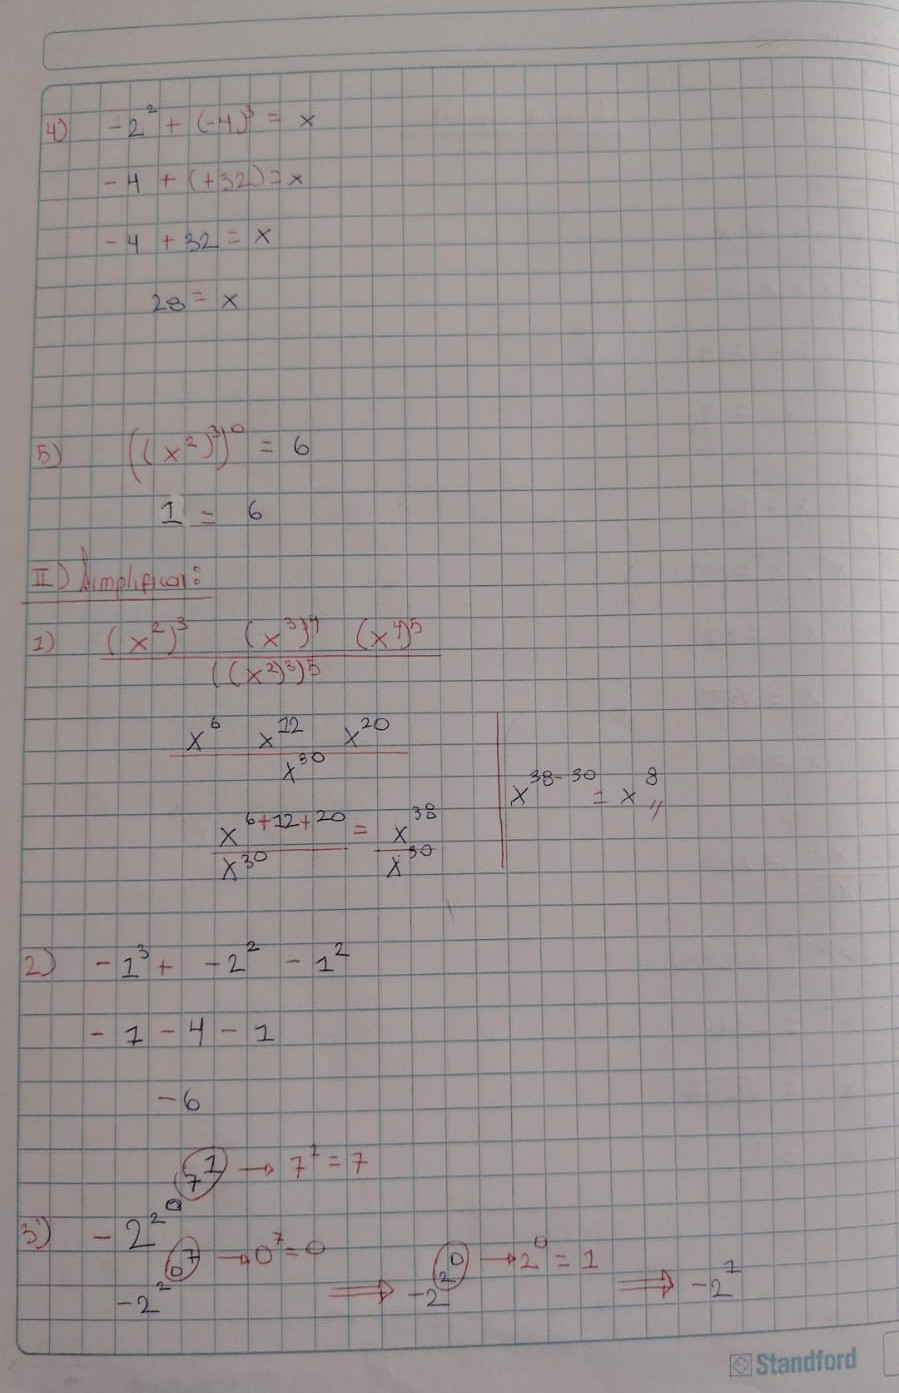 4) -2² + (-4)³ = x
-4 + (+32) = x
-4 + 32 = x
28 = x
5) ((x²)³)⁰ = 6
1 = 6
II) Simplificar:
1) (x²)³ (x³)⁴ (x⁴)⁵
((x²)³)⁵
x⁶ x¹² x²⁰
x³⁰
x⁶⁺¹²⁺²⁰ = x³⁸
x³⁰ x³⁰
x³⁸⁻³⁰ = x⁸
2) -1³ + -2² - 1²
-1 - 4 - 1
-6
7¹ → 7¹ = 7
3) -2^2^0^7^1
-2^2^0^7 → 0⁷ = 0 ⇒ -2^2^0 → 2⁰ = 1 ⇒ -2¹
Standford